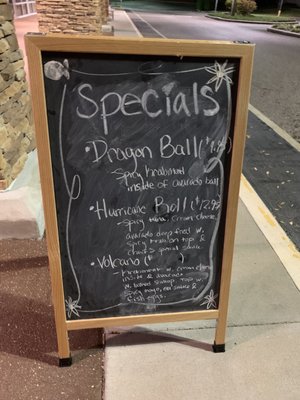 Specials
• Dragon Ball
spicy
inside of avocado ball
• Hurricane Roll ($12.95
- spicy tuna, cream cheese,
avocado deep fried w.
spicy top &
special sauce
• Volcano (
w. cream
& avocado
w. baked top w.
spicy mayo, eel sauce &
fish eggs.